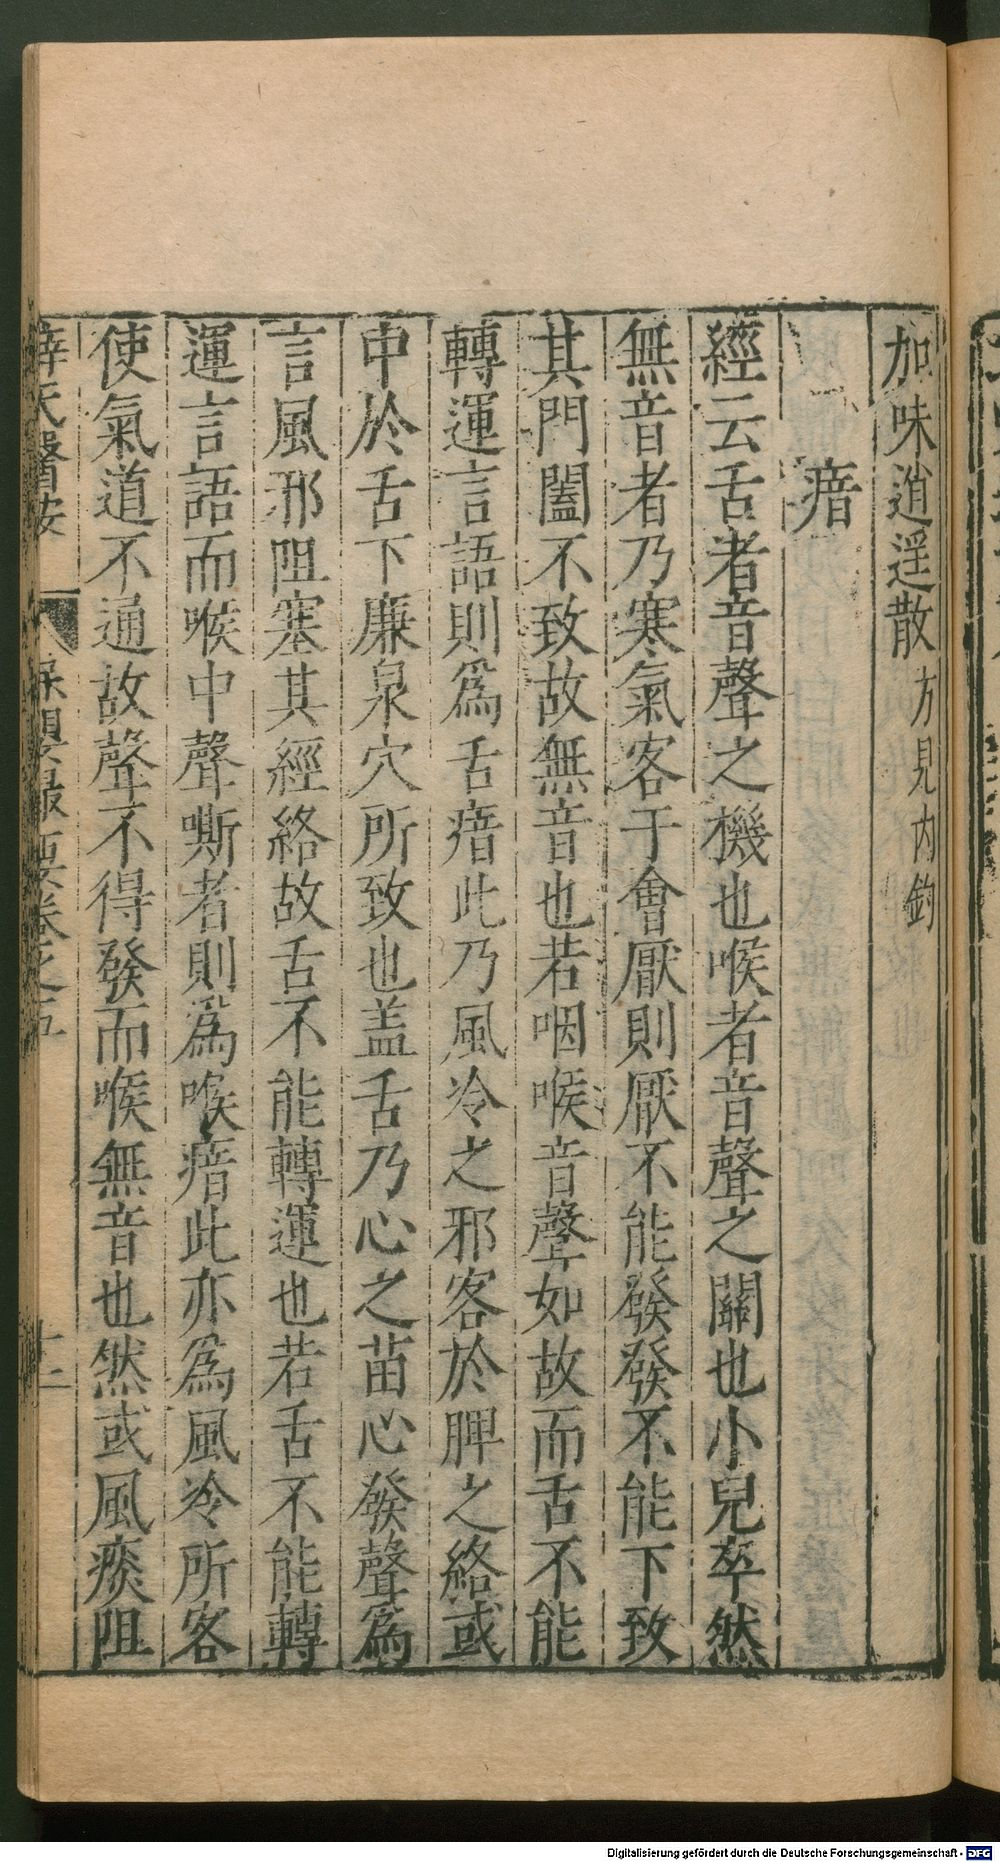 加味逍遥散方見内鈞
瘖
經云舌者音聲之機也喉者音聲之關也小兒卒然
無音者乃寒氣客于會厭則厭不能發發不能下致
其門闔不致故無音也若咽喉音聲如故而舌不能
轉運言語則爲舌瘖此乃風冷之邪客於脾之絡或
中於舌下廉泉穴所致也盖舌乃心之苗心發聲爲
言風邪阻塞其經絡故舌不能轉運也若舌不能轉
運言語而喉中聲嘶者則爲喉瘖此亦爲風冷所客
使氣道不通故聲不得發而喉無音也然或風痰阻
保嬰撮要卷之五
十二
Digitalisierung gefördert durch die Deutsche Forschungsgemeinschaft - DFG